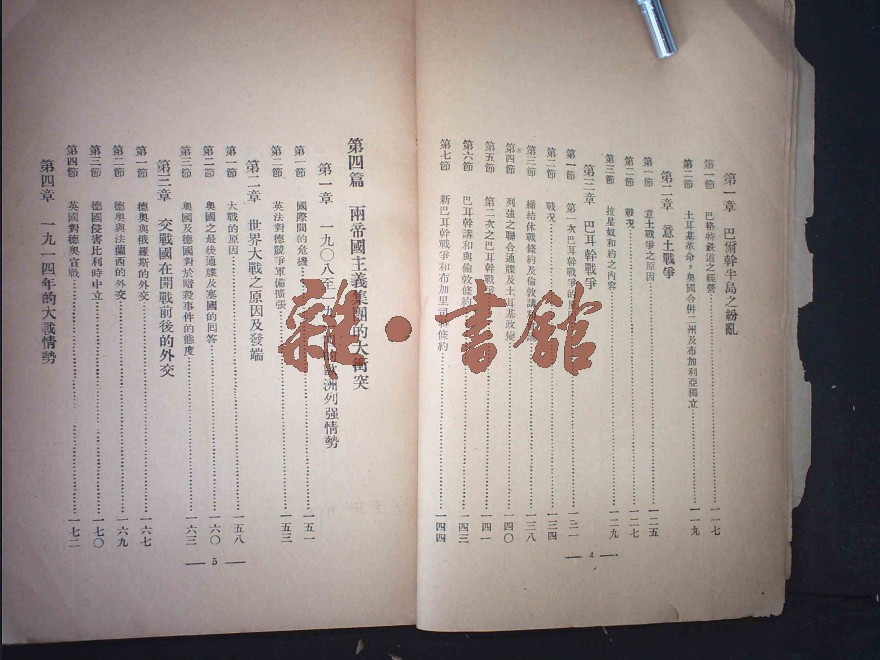 第一章　巴爾幹半島之紛亂
第一節　巴格特鉄道之經營 一一七
第二節　土耳基革命，奧國合併二州及布加利亞獨立 一一九
第二章　意土戰爭
第一節　意土戰爭之原因 一二五
第二節　戰况 一二七
第三節　拉星奴和約之內容 一二九
第三章　巴耳幹戰爭
第一節　第一次巴耳幹戰爭的 一三一
第二節　戰况 一三四
第三節　締結休戰條約及倫敦講和 一三八
第四節　列强之聯合通牒及土耳基政變 一四〇
第五節　第二次之巴耳幹戰爭 一四一
第六節　巴耳幹講和與倫敦條約 一四三
第七節　新巴耳幹戰爭和布加里 條約 一四四
— 4 —
第四篇　兩帝國主義集團的大衝突
第一章　一九〇八至一九 的歐洲列强情勢
第一節　國際間的危機 一五一
第二節　英法對德競爭軍備擴張 一五三
第二章　世界大戰之原因及發端
第一節　大戰的原因 一五八
第二節　奧國之最後通牒及塞國的回答 一六〇
第三節　奧國及德國對於暗殺事件的態度 一六三
第三章　交戰國在開戰前後的外交
第一節　德奧與俄羅斯的外交 一六七
第二節　德奧與法蘭西的外交 一六九
第三節　德國侵害比利時中立 一七〇
第四節　英國對德奧宣戰 一七二
第四章　一九一四年的大戰情勢
— 5 —
雜·書館